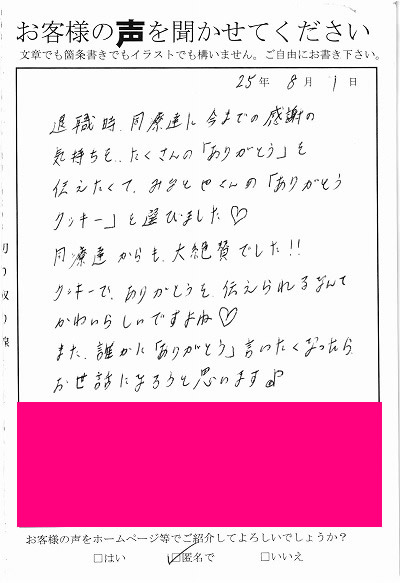 お客様の声を聞かせてください
文章でも箇条書きでもイラストでも構いません。ご自由にお書き下さい。
25年 8月 1日
退職時、同僚達に今までの感謝の
気持ちを、たくさんの「ありがとう」を
伝えたくて、みなとやさんの「ありがとう
クッキー」を選びました♡
同僚達からも、大絶賛でした!!
クッキーで、ありがとうを、伝えられるなんて
かわいらしいですよね♡
また、誰かに「ありがとう」言いたくなったら
お世話になろうと思います♪
お客様の声をホームページ等でご紹介してよろしいでしょうか？
□はい ☑匿名で □いいえ